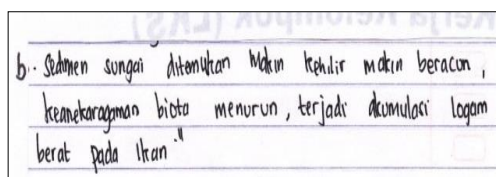 b. Sedimen sungai ditemukan makin kehilir makin beracun,
keanekaragaman biota menurun, terjadi akumulasi logam
berat pada ikan."